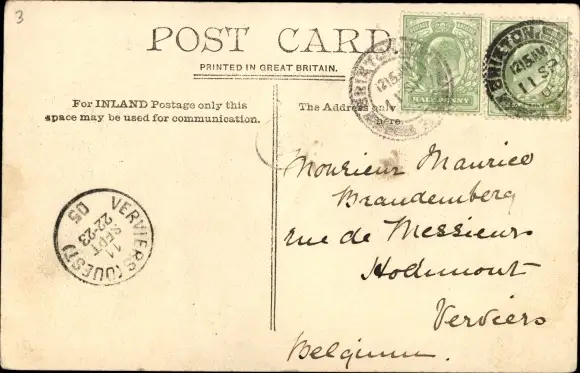 3
POST CARD
PRINTED IN GREAT BRITAIN.
For INLAND Postage only this
space may be used for communication.
The Address only
here.
HALFPENNY
BRIXTON.S.
12.15AM
11 SP
VERVIERS (OUEST)
11
SEPT
22-23
05
Monsieur Maurice
Brandemberg
rue de Messieurs
Hodimont
Verviers
Belgium.